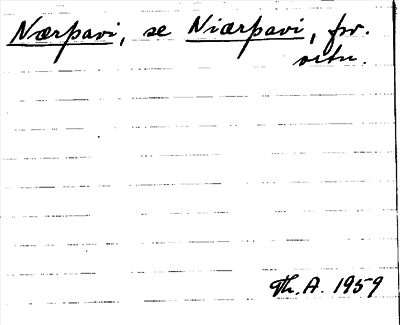 Nærpavi, se Niærpavi, for.
vitn.
Th. A. 1959